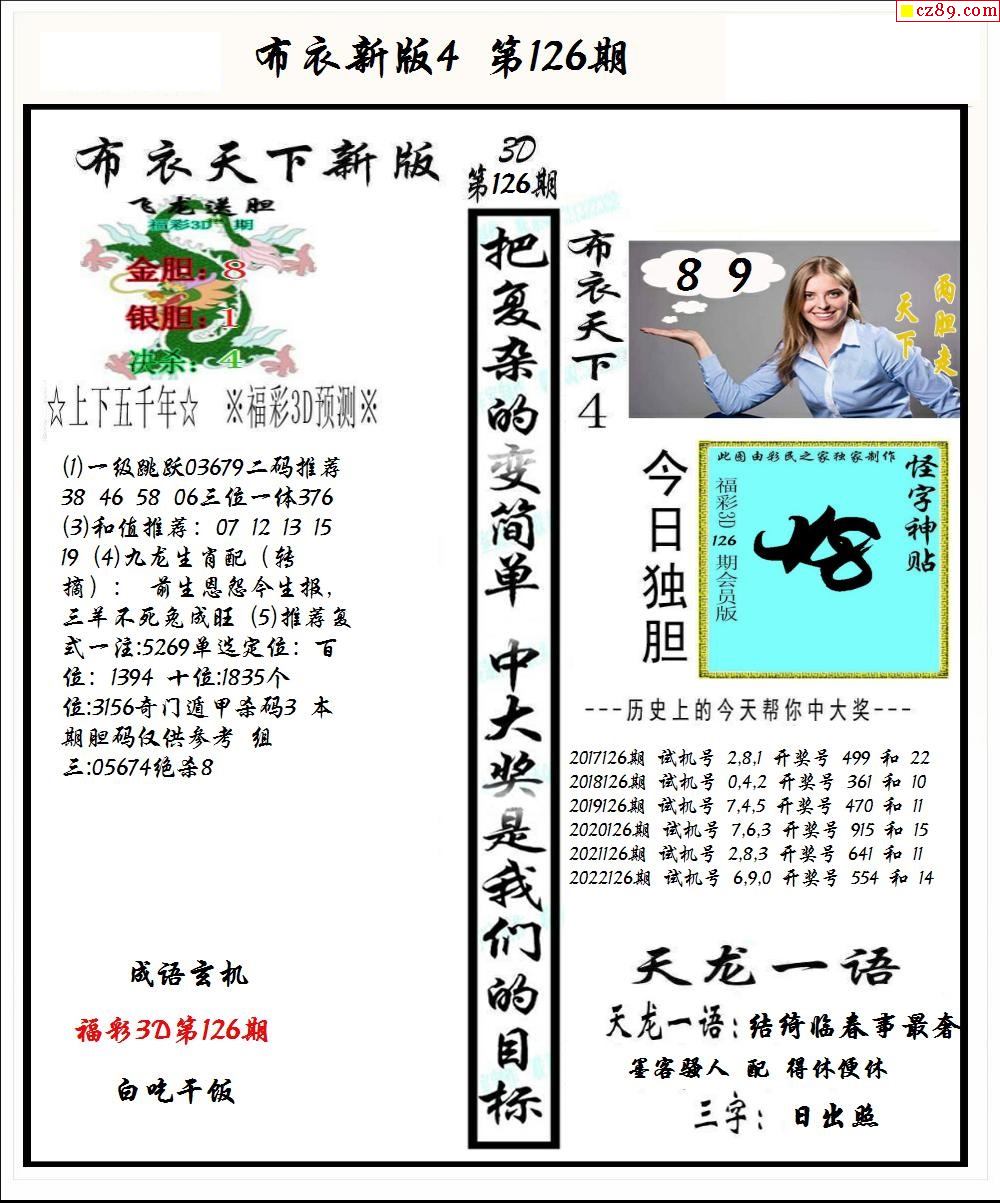 cz89.com
布衣新版4 第126期
布衣天下新版
飞龙送胆
福彩3D 期
金胆：8
银胆：1
决杀：4
☆上下五千年☆ ※福彩3D预测※
(1)一级跳跃03679二码推荐
38 46 58 06三位一体376
(3)和值推荐：07 12 13 15
19 (4)九龙生肖配（转
摘）： 前生恩怨今生报，
三羊不死兔成旺 (5)推荐复
式一注:5269单选定位：百
位：1394 十位:1835个
位:3156奇门遁甲杀码3 本
期胆码仅供参考 组
三:05674绝杀8
成语玄机
福彩3D第126期
白吃干饭
3D
第126期
把复杂的变简单 中大奖是我们的目标
布衣天下4
8 9
两胆走
天下
今日独胆
此图由彩民之家独家制作
怪字神贴
福彩3D 126 期会员版
---历史上的今天帮你中大奖---
2017126期 试机号 2,8,1 开奖号 499 和 22
2018126期 试机号 0,4,2 开奖号 361 和 10
2019126期 试机号 7,4,5 开奖号 470 和 11
2020126期 试机号 7,6,3 开奖号 915 和 15
2021126期 试机号 2,8,3 开奖号 641 和 11
2022126期 试机号 6,9,0 开奖号 554 和 14
天龙一语
天龙一语：结绮临春事最奢
墨客骚人 配 得休便休
三字： 日出照